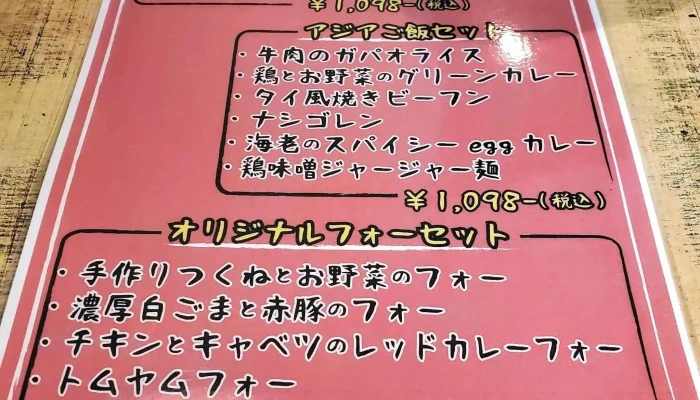 ¥1,098-(税込)
アジアご飯セット
・牛肉のガパオライス
・鶏とお野菜のグリーンカレー
・タイ風焼きビーフン
・ナシゴレン
・海老のスパイシーeggカレー
・鶏味噌ジャージャー麺
¥1,098-(税込)
オリジナルフォーセット
・手作りつくねとお野菜のフォー
・濃厚白ごまと赤豚のフォー
・チキンとキャベツのレッドカレーフォー
・トムヤムフォー